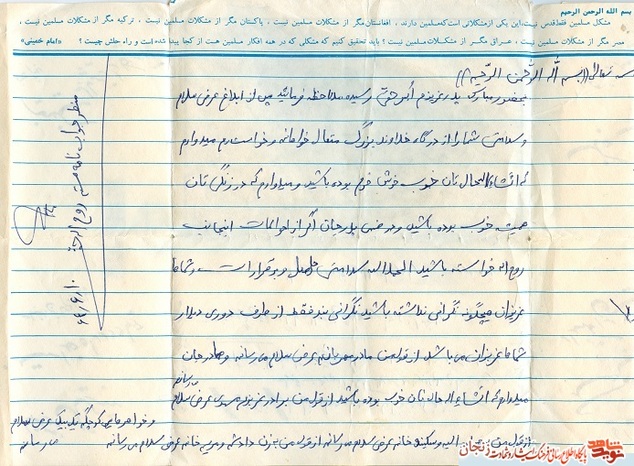 بسم الله الرحمن الرحیم
مشکل مسلمین فقط قدس نیست، این یکی از مشکلاتی است که مسلمین دارند. افغانستان مگر از مشکلات مسلمین نیست، پاکستان مگر از مشکلات مسلمین نیست، ترکیه مگر از مشکلات مسلمین نیست،
مصر مگر از مشکلات مسلمین نیست، عراق مگر از مشکلات مسلمین نیست؟ باید تحقیق کنیم که مشکلی که در همه افکار مسلمین هست از کجا پیدا شده است و راه حلش چیست؟ «امام خمینی»
بسمه تعالی ((بسم الله الرحمن الرحیم))
بحضور مبارک پدر عزیزم رسیده ملاحظه فرمائید پس از ابلاغ عرض سلام
و سلامتی شما را از درگاه خداوند بزرگ متعال خواهانم و خواستارم میدوارم
که انشاءالله حال تان خوب خوش خرم بوده باشید و میدوارم که در زندگی تان
همیشه خوب بوده باشید و در ضمن پدر جان اگر از احوالات اینجانب
روح اله خواسته باشید الحمدالله سلامتی حاصل و برقرار است و شما
عزیزان هیچگونه نگرانی نداشته باشید نگرانی بنده فقط از طرف دوری دیدار
شما عزیزان می باشد از قول من مادر مهربانم عرض سلام می رسانم و مادر جان
میدوارم که انشاءاله حال تان خوب بوده باشید از قول من برادر عزیزم عرض سلام
می رسانم
و خواهرهای کوچکم یک یک عرض سلام
می رسانم
از قول من و سکینه خانم عرض سلام می رسانم از قول من به زن داداشم و مریم خانم عرض سلام می رسانم
منتظر جواب نامه هستم روح اله
۶۴/۶/۱۰
نوید شاهد
پایگاه اطلاع رسانی فرهنگ ایثار و شهادت زنجان